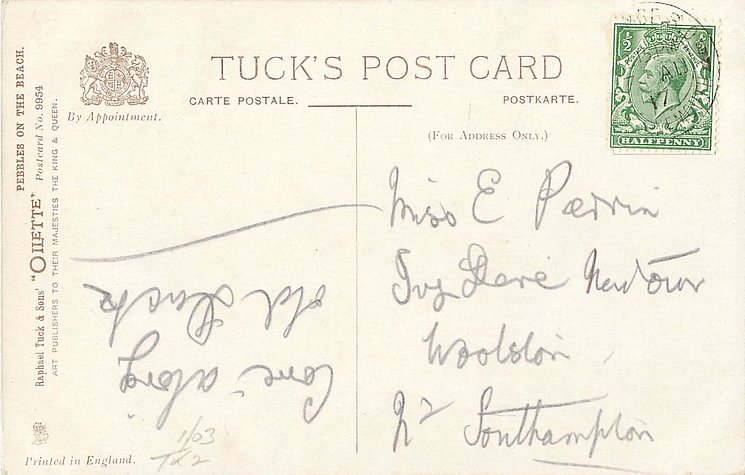 TUCK'S POST CARD
CARTE POSTALE.
POSTKARTE.
By Appointment.
(FOR ADDRESS ONLY.)
PEBBLES ON THE BEACH.
Raphael Tuck & Sons' "OILETTE" Postcard No. 9954
ART PUBLISHERS TO THEIR MAJESTIES THE KING & QUEEN.
½
AU
17
HALFPENNY
Miss E Perrin
Ivy Newtown
Woolston
Nr Southampton
Come along
old
1/03
Printed in England.